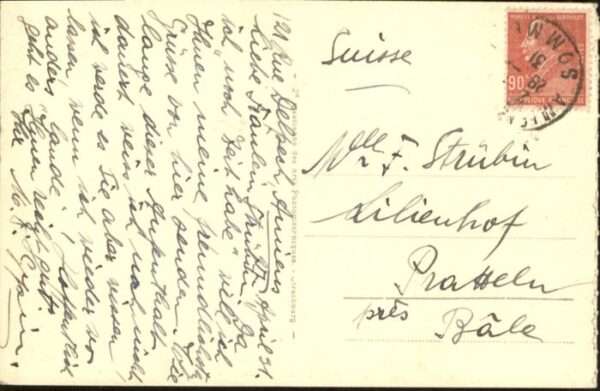 121 Rue Delpech, Amiens
27. April 31.
Liebe Fräulein Strübin! Da
ich noch Zeit habe will ich
Ihnen meine freundlichste
Grüsse von hier senden. Wie
lange dieser Aufenthalt
dauert weiss ich noch nicht
ich werde es Sie aber wissen
lassen, wenn ich wieder wo
anders lande. Hoffentlich
geht es Ihnen recht gut.
Ihr
Suisse
Mlle F. Strübin
Lilienhof
Pratteln
près
Bâle
SOMME
90